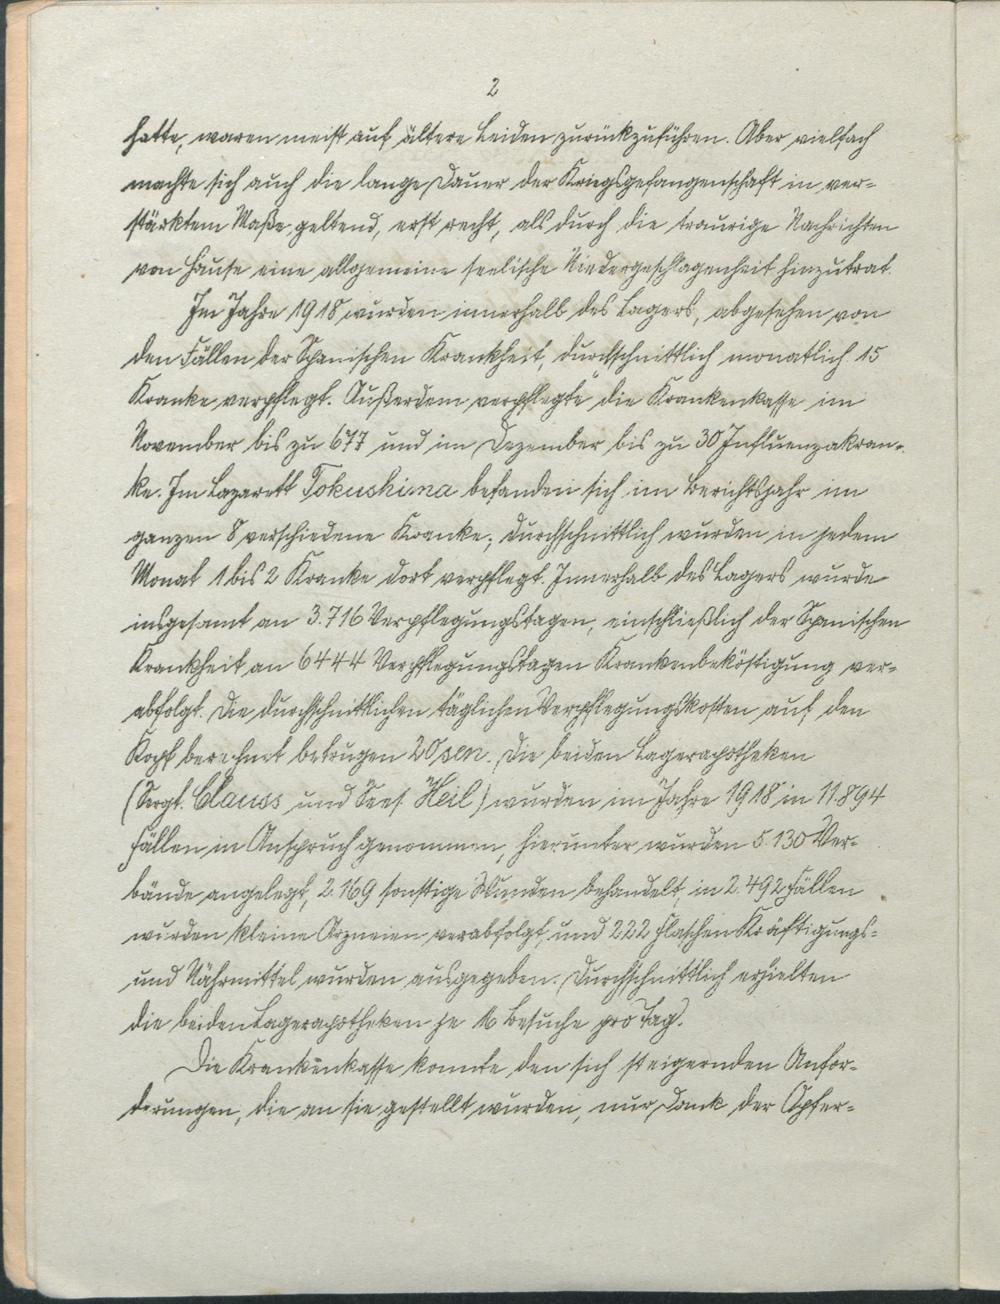 2
hatte, waren meist auf ältere Leiden zurückzuführen. Aber vielfach
machte sich auch die lange Dauer der Kriegsgefangenschaft in ver-
stärktem Maße geltend, erst recht, als durch die traurige Nachrichten
von Hause eine allgemeine seelische Niedergeschlagenheit hinzutrat.
Im Jahre 1918 wurden innerhalb des Lagers, abgesehen von
den Fällen der Spanischen Krankheit, durchschnittlich monatlich 15
Kranke verpflegt. Außerdem verpflegte die Krankenkasse im
November bis zu 677 und im Dezember bis zu 30 Influenzakran-
ke. Im Lazarett Tokushima befanden sich im Berichtsjahr im
ganzen 8 verschiedene Kranke; durchschnittlich wurden in jedem
Monat 1 bis 2 Kranke dort verpflegt. Innerhalb des Lagers wurde
insgesamt an 3.716 Verpflegungstagen, einschließlich der Spanischen
Krankheit an 6444 Verpflegungstagen Krankenbeköstigung ver-
abfolgt. Die durchschnittlichen täglichen Verpflegungskosten auf den
Kopf berechnet betrugen 20 sen. Die beiden Lagerapotheken
(Sergt. Clauss und Sees. Heil) wurden im Jahre 1918 in 11.894
Fällen in Anspruch genommen, hierunter wurden 5.130 Ver-
bände angelegt, 2.169 sonstige Wunden behandelt, in 2.492 Fällen
wurden kleine Arzneien verabfolgt, und 222 Flaschen Kräftigungs-
und Nährmittel wurden ausgegeben. Durchschnittlich erhielten
die beiden Lagerapotheken je 16 Besuche pro Tag.
Die Krankenkasse konnte den sich steigernden Anfor-
derungen, die an sie gestellt wurden, nur Dank der Opfer-